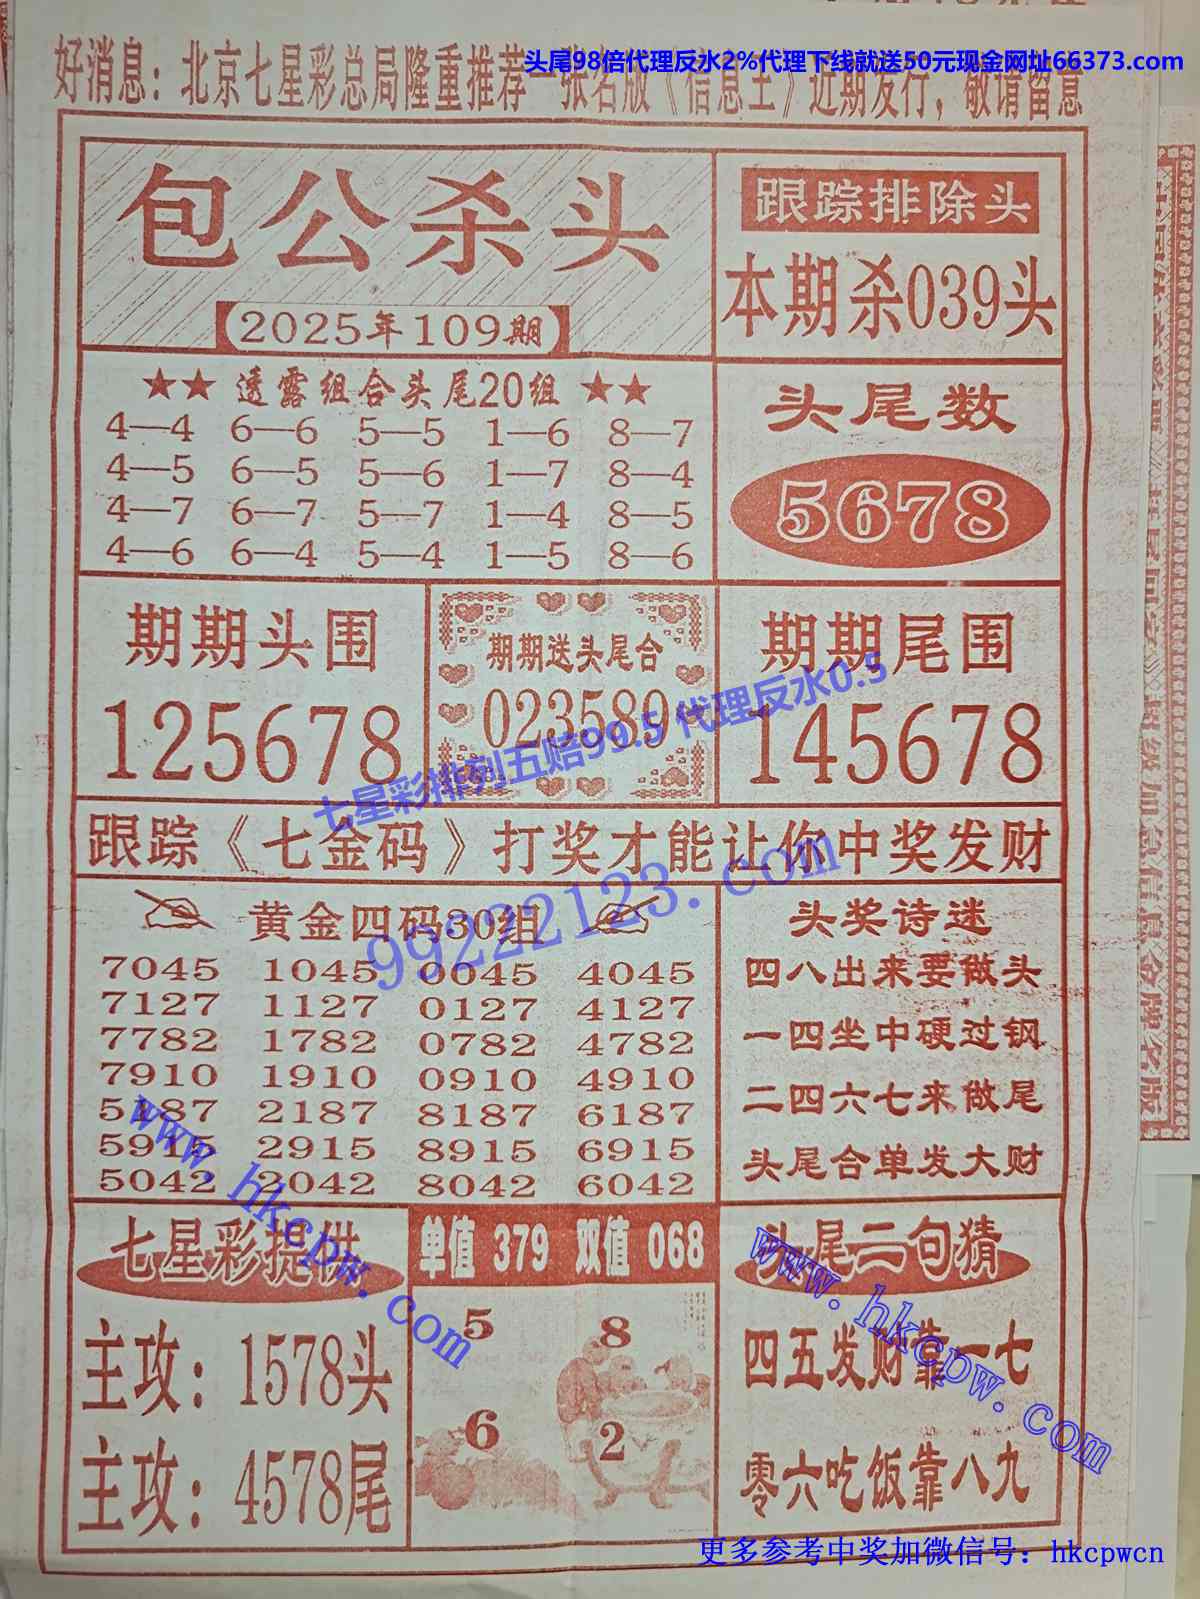 头尾98倍代理反水2%代理下线就送50元现金网址66373.com
好消息：北京七星彩总局隆重推荐一张名版《信息王》近期发行，敬请留意
包公杀头
2025年109期
跟踪排除头
本期杀039头
★★ 透露组合头尾20组 ★★
4—4 6—6 5—5 1—6 8—7
4—5 6—5 5—6 1—7 8—4
4—7 6—7 5—7 1—4 8—5
4—6 6—4 5—4 1—5 8—6
头尾数
5678
期期头围
125678
期期送头尾合
023589
期期尾围
145678
七星彩排列五赔99.5 代理反水0.5
跟踪《七金码》打奖才能让你中奖发财
99222123.com
黄金四码30组
7045 1045 0045 4045
7127 1127 0127 4127
7782 1782 0782 4782
7910 1910 0910 4910
5187 2187 8187 6187
5915 2915 8915 6915
5042 2042 8042 6042
头奖诗迷
四八出来要做头
一四坐中硬过钢
二四六七来做尾
头尾合单发大财
www.hkcpw.com
七星彩提供
主攻：1578头
主攻：4578尾
单值 379 双值 068
5
8
6
2
头尾二句猜
四五发财靠一七
零六吃饭靠八九
www.hkcpw.com
更多参考中奖加微信号：hkcpwcn